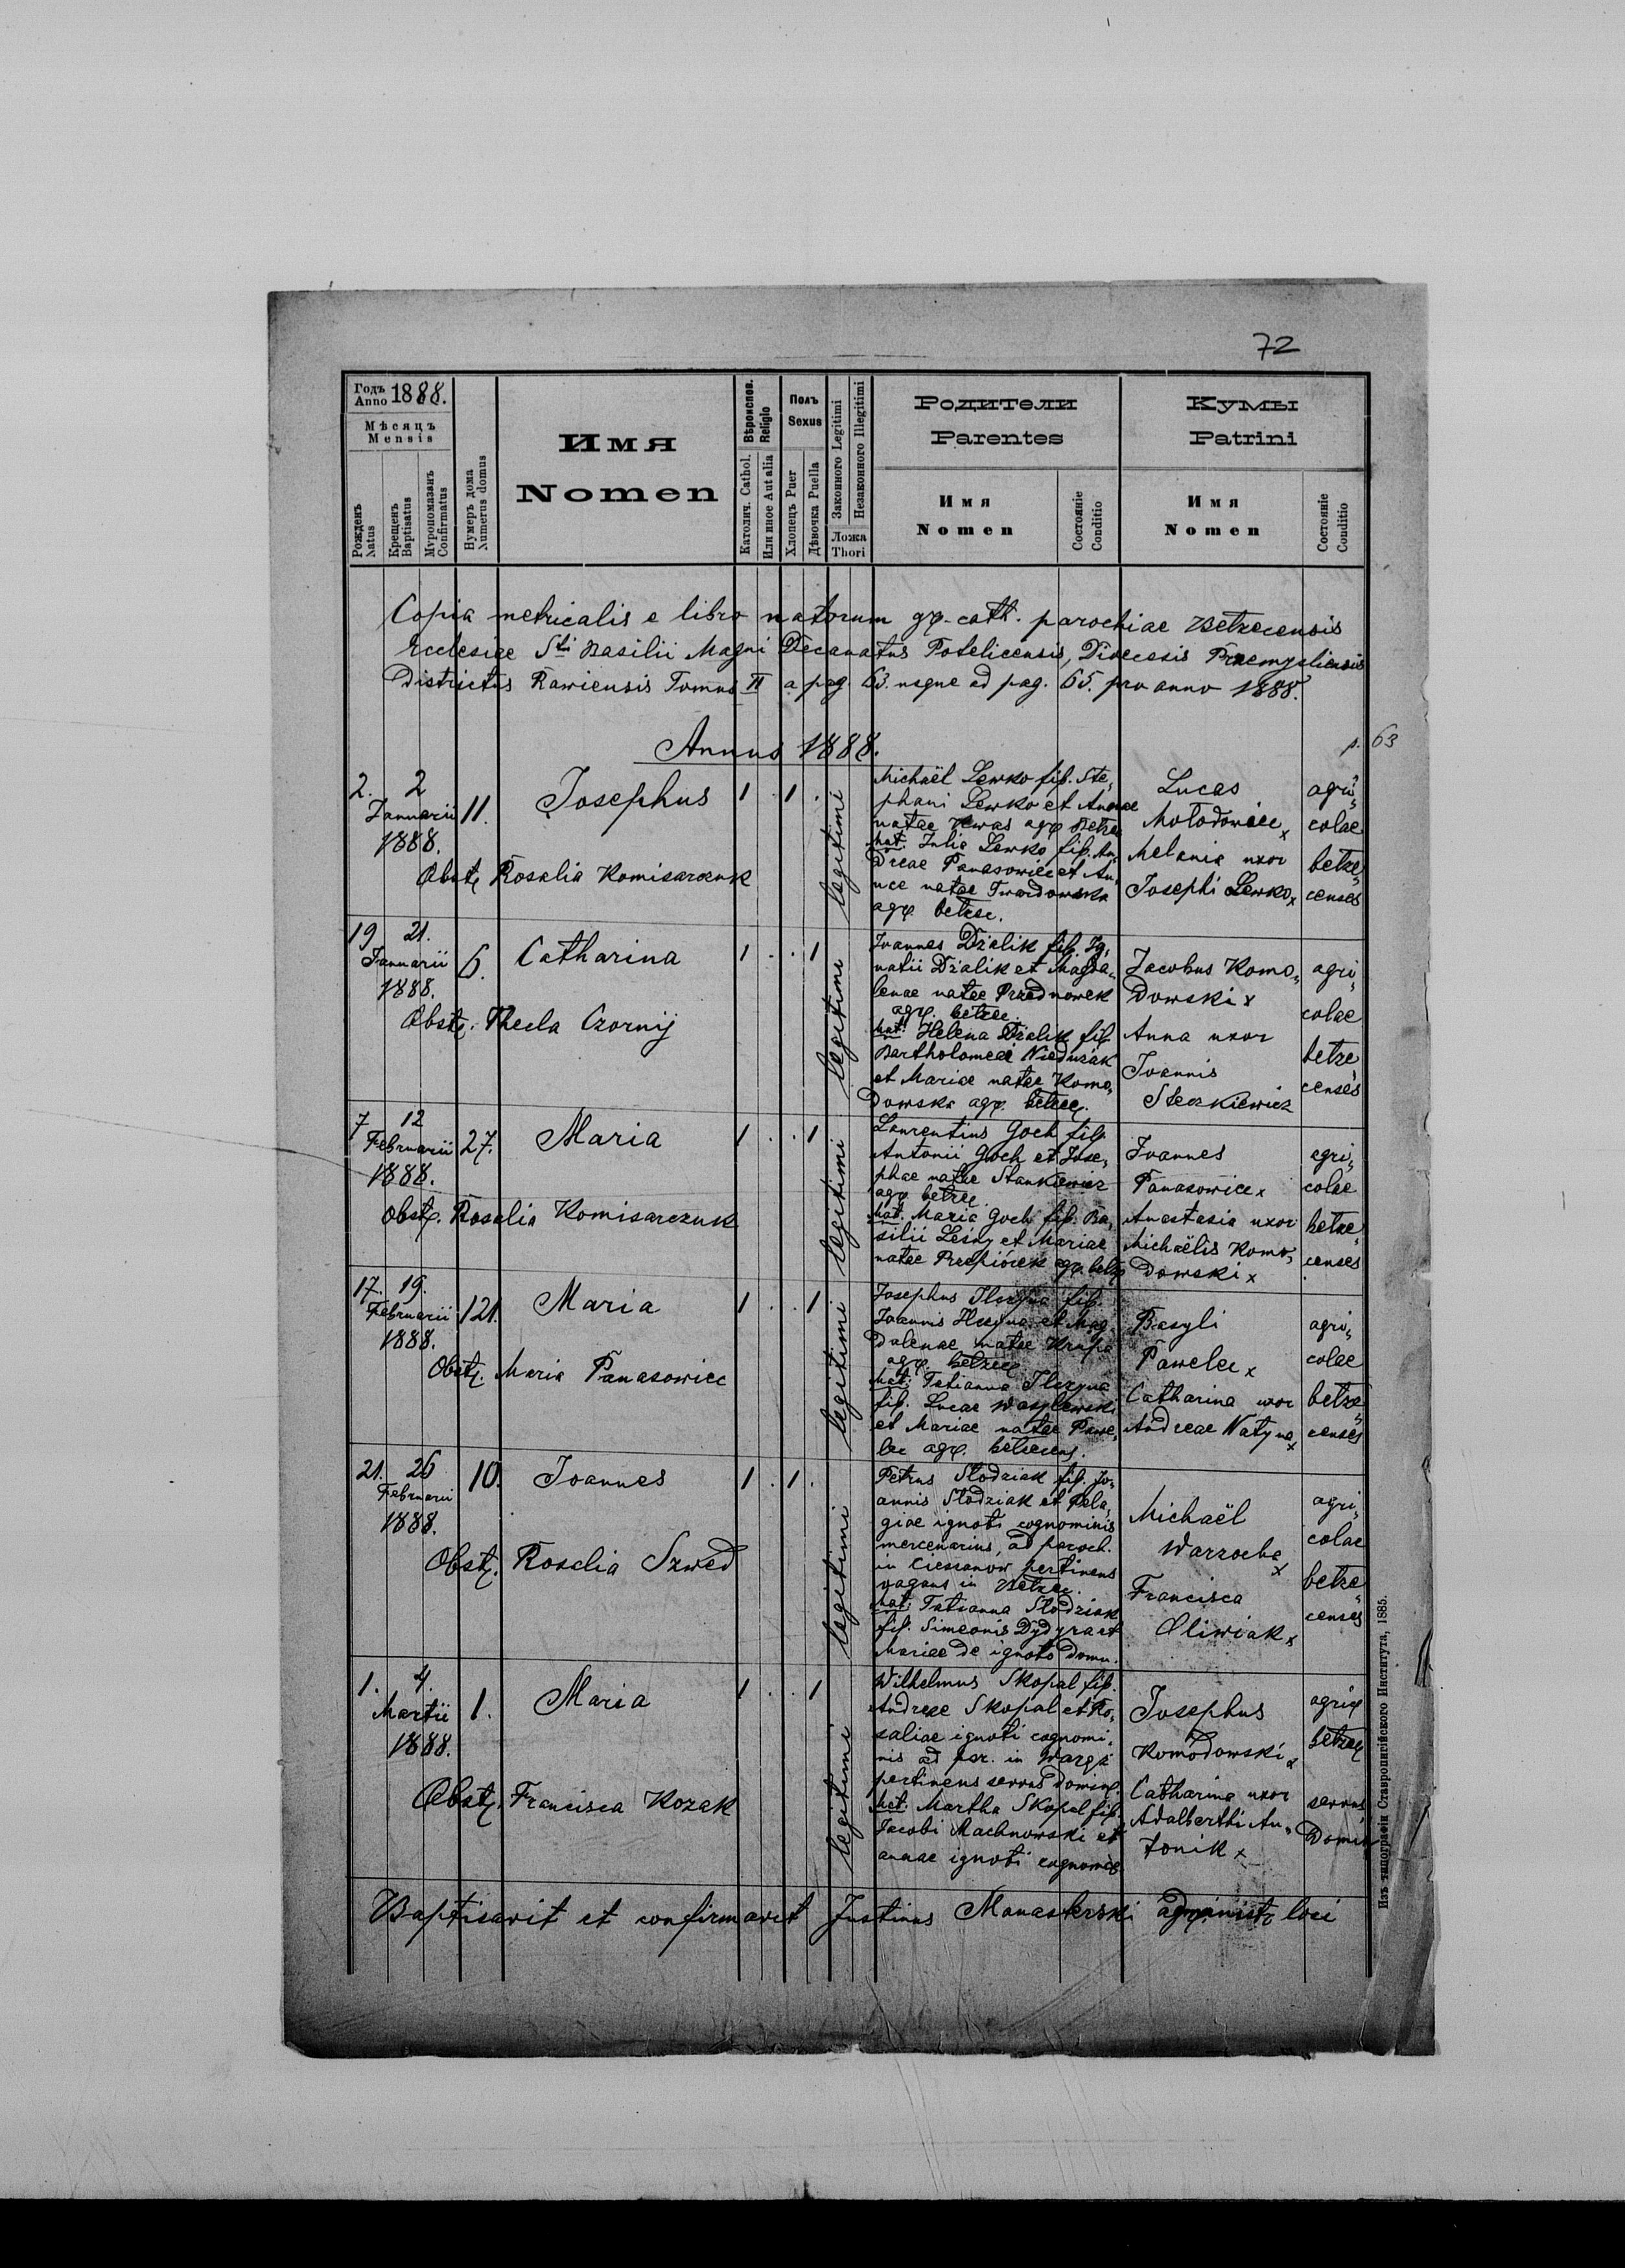 72
Годъ
Anno 1888.
Мѣсяцъ
Mensis
Рожденъ
Natus
Крещенъ
Baptisatus
Мѵропомазанъ
Confirmatus
Нумеръ дома
Numerus domus
Имя
Nomen
Вѣроисповв.
Religio
Католич. Cathol.
Или иное Aut alia
Полъ
Sexus
Хлопецъ Puer
Дѣвочка Puella
Законного Legitimi
Незаконного Illegitimi
Ложа
Thori
Родители
Parentes
Имя
Nomen
Состояніе
Conditio
Кумы
Patrini
Имя
Nomen
Состояніе
Conditio
Copia metricalis e libro natorum gr. cath. parochiae Betzecensis
Ecclesiae Sti Basilii Magni Decanatus Potelicensis, Diecesis Praemysliensis
Districtus Rawiensis Tomus II a pag. 63. usque ad pag. 65. pro anno 1888.
Annus 1888.
p. 63
2. 2
Januarii
1888.
11.
Josephus
1 . 1 .
legitimi
Obst. Rosalia Komisarczuk
Michaël Lewko fil. Ste„
phani Lewko et Annae
natae
Mat. Julia Lewko fil. An„
dreae Panasowiec et An„
nae natae Twardowska
agr. betzec.
Lucas
Mołodowiec x
Melania uxor
Josephi Lewko x
agri„
colae
betze„
censes
19 21.
Januarii
1888.
6.
Catharina
1 . . 1
legitimi
Obst. Thecla Czornij
Joannes Dżalik fil. Ig„
natii Dżalik et Magda„
lenae natae Przednowek
agr. betzec.
Mat. Helena Dżalik fil.
Bartholomeei Niedużak
et Mariae natae Komo„
dowska agr. betzec.
Jacobus Komo„
dowski x
Anna uxor
Joannis
Steczkiewicz
agri„
colae
betze„
censes
7 12
Februarii
1888.
27.
Maria
1 . . 1
legitimi
Obst. Rosalia Komisarczuk
Laurentius Goch fil.
Antonii Goch et Jose„
phae natae Stankiewicz
agr. betzec.
Mat. Maria Goch fil. Ba„
silii Leśny et Mariae
natae Przepiórek agr. betz.
Joannes
Panasowiec x
Anastasia uxor
Michaëlis Komo„
dowski x
agri„
colae
betze„
censes
17. 19.
Februarii
1888.
121.
Maria
1 . . 1
legitimi
Obst. Maria Panasowiec
Josephus fil.
Joannis et Mag„
dalenae natae Krupa
agr. betzec.
Mat. Tatianna
fil. Lucae Wasylewski
et Mariae natae Pawe„
lec agr. betzecens.
Basyli
Pawelec x
Catharina uxor
Andreae Natyna x
agri„
colae
betze„
censes
21. 26
Februarii
1888.
10.
Joannes
1 . 1 .
legitimi
Obst. Rosalia Szwed
Petrus Słodziak fil. Jo„
annis Słodziak et Pela„
giae ignoti cognominis
mercenarius, ad paroch.
in Cieszanów pertinens
vagans in Betzec.
Mat. Tatianna Słodziak
fil. Simeonis Dydyra et
Mariae de ignoto domu.
Michaël
Warzocha x
Francisca
Oliwiak x
agri„
colae
betze„
censes
1. 4.
Martii
1888.
1.
Maria
1 . . 1
legitimi
Obst. Francisca Kozak
Wilhelmus Skopal fil.
Andreae Skopal et Ro„
saliae ignoti cognomi„
nis ad par. in
pertinens servus domin.
Mat. Martha Skopal fil.
Jacobi Machnowski et
annae ignoti cognomis
Josephus
Komodowski x
Catharina uxor
Adalberthi An„
tonik x
agric
betzec
servus
Domin
Baptisavit et confirmavit Justinus Manasterski administ. loci
Изъ типографіи Ставропигійского Института, 1885.